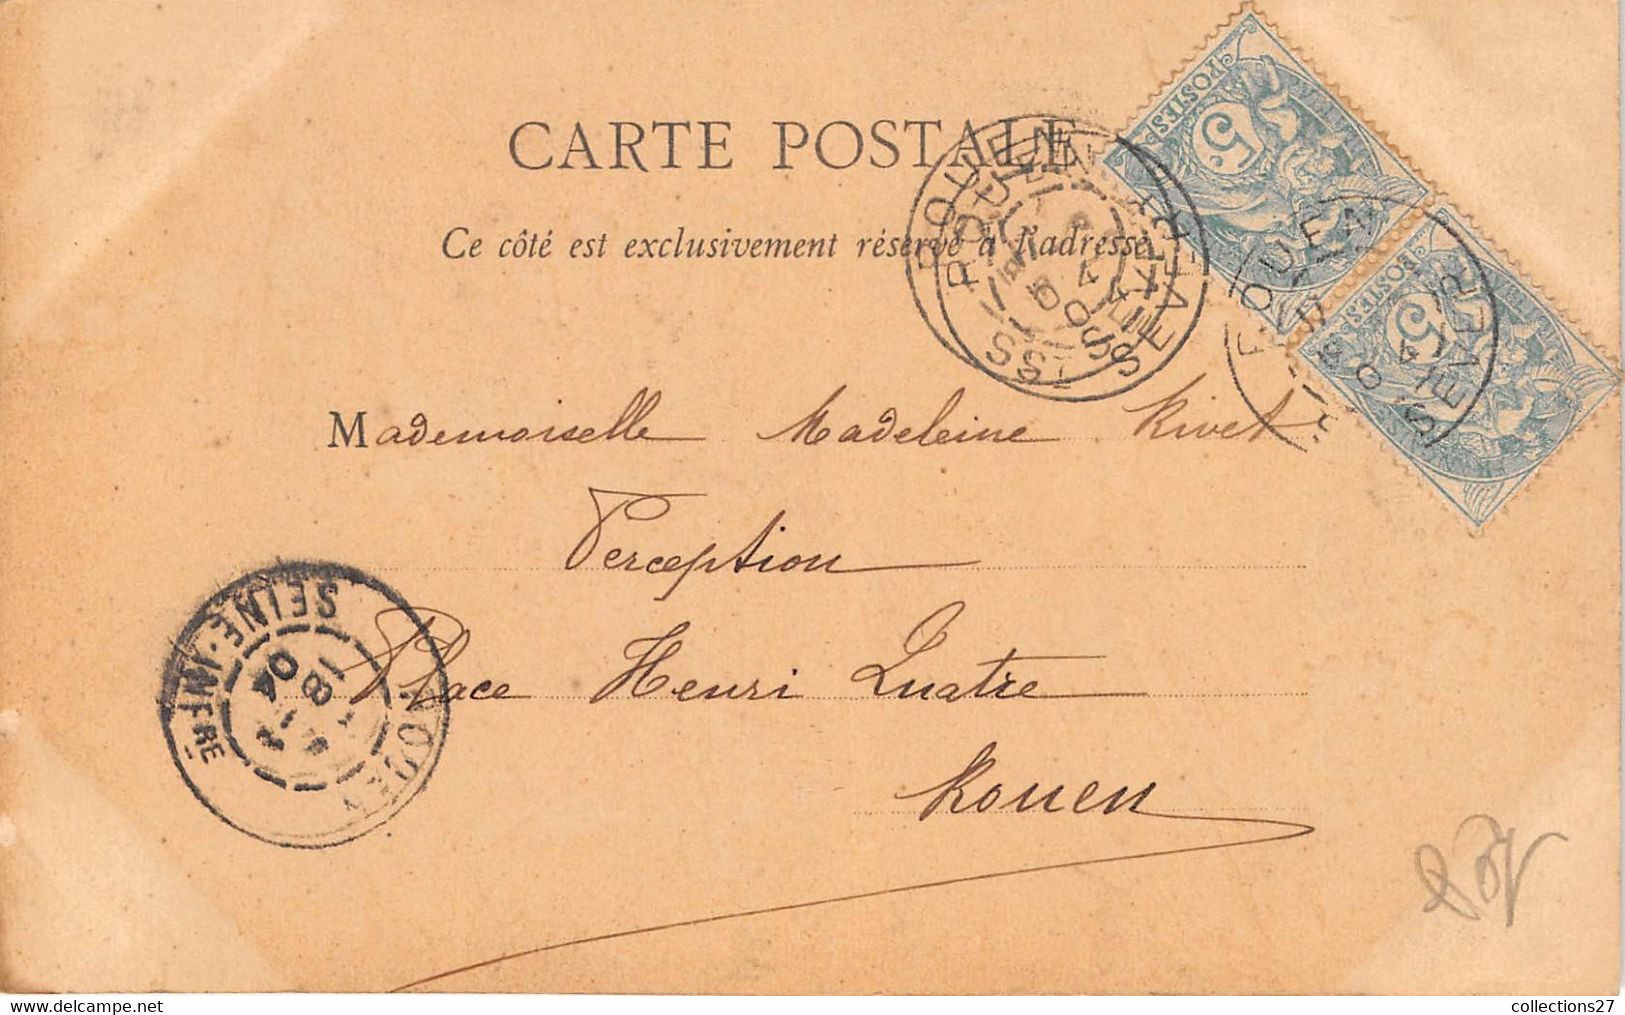 CARTE POSTALE
Ce côté est exclusivement réservé à l'adresse
POSTES
5
POSTES
5
ROUEN
ROUEN
ST SEVER
ROUEN
ST SEVER
Mademoiselle Madeleine Rivet
Perception
Place Henri Quatre
Rouen
ROUEN
SEINE-INFRE
18
04
collections27